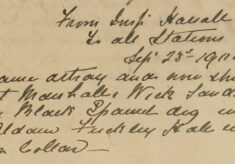 From Insp Havall
To all Stations
Sep 23rd 191
came astray and now sh
t Marshalls Wick Sand
Black Spaniel dog
Adam Finchley Hall
n Collar